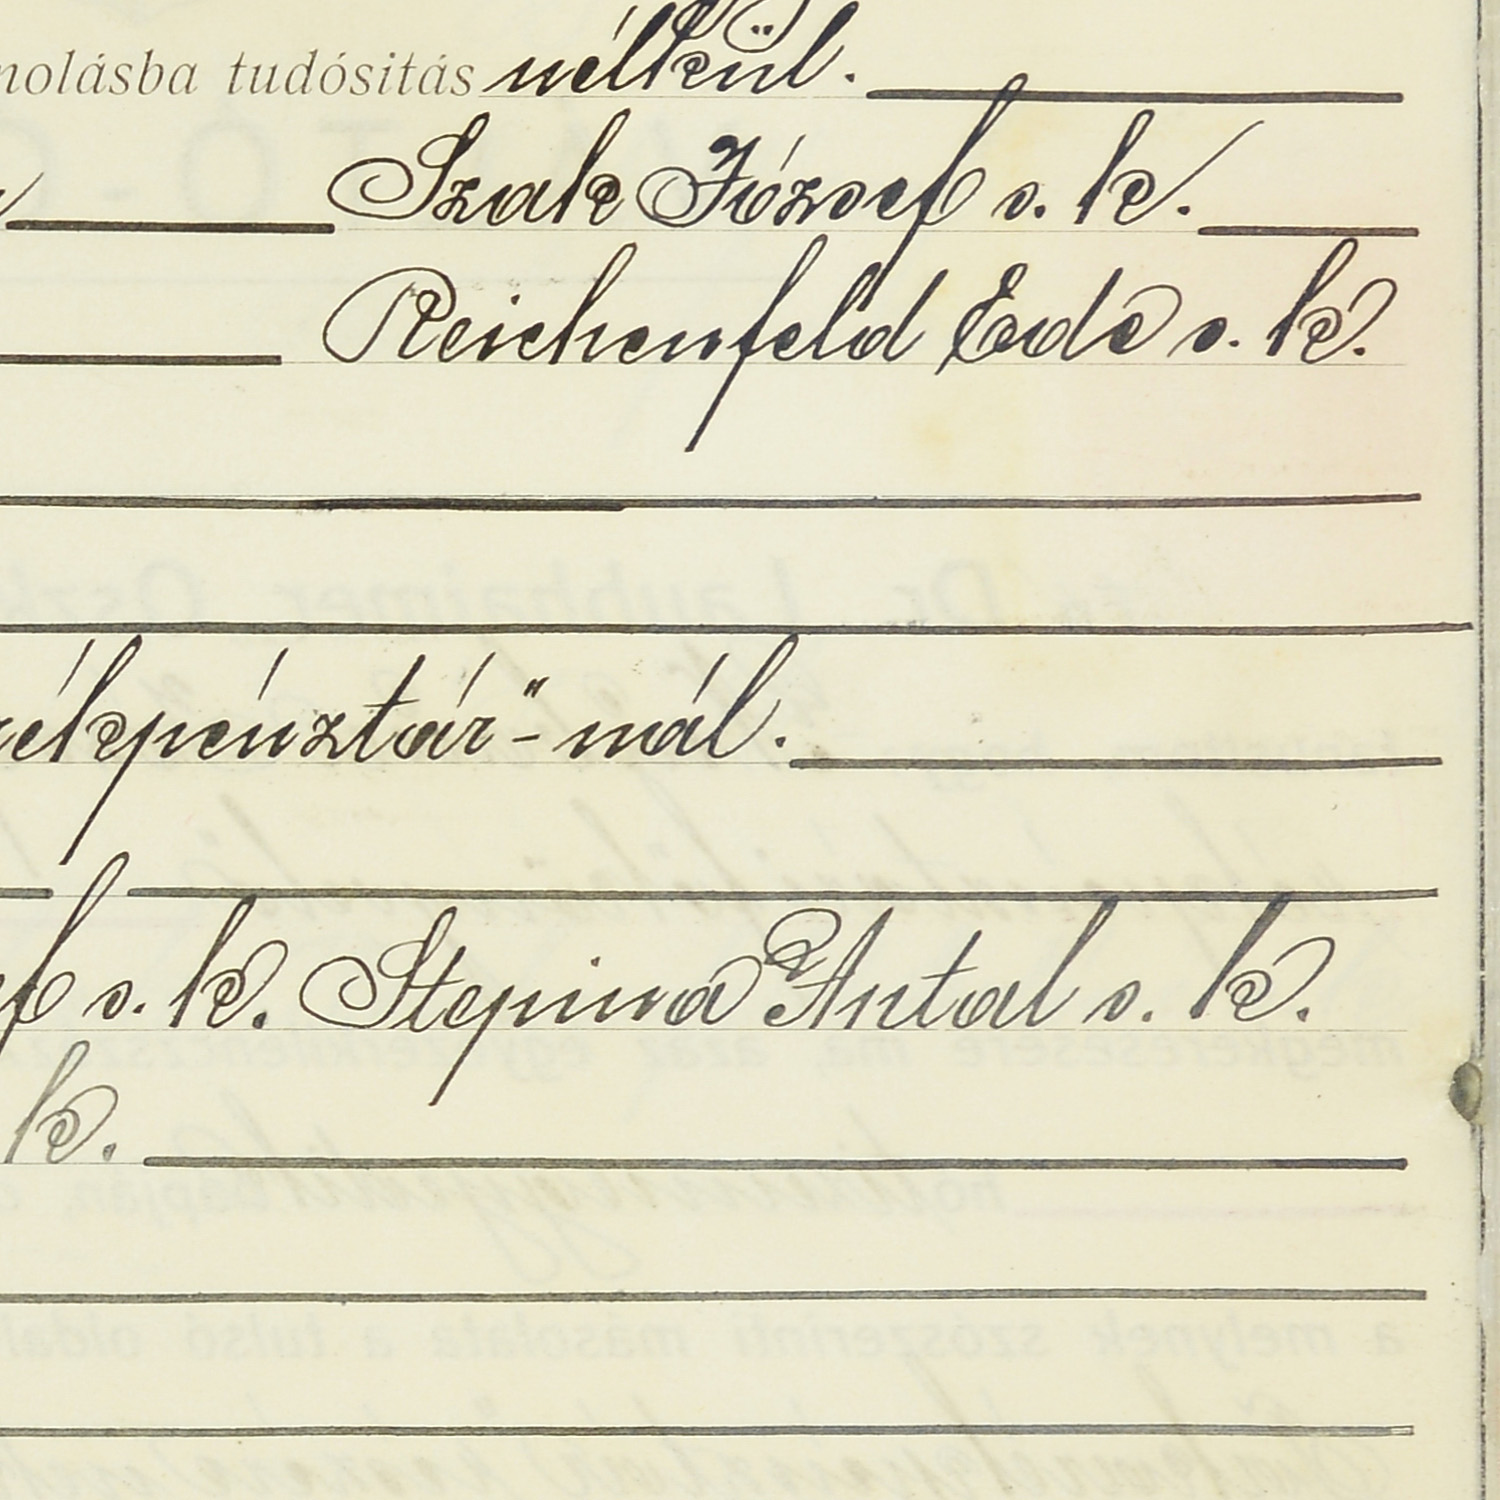 nolásba tudósitás nélkül.
Szak József s. k.
Reichenfeld Ede s. k.
rékpénztár"-nál.
f s. k. Stepina Antal s. k.
k.